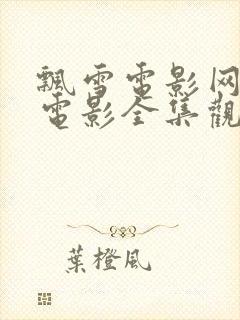 飄雪電影网
電影全集觀
葉橙風